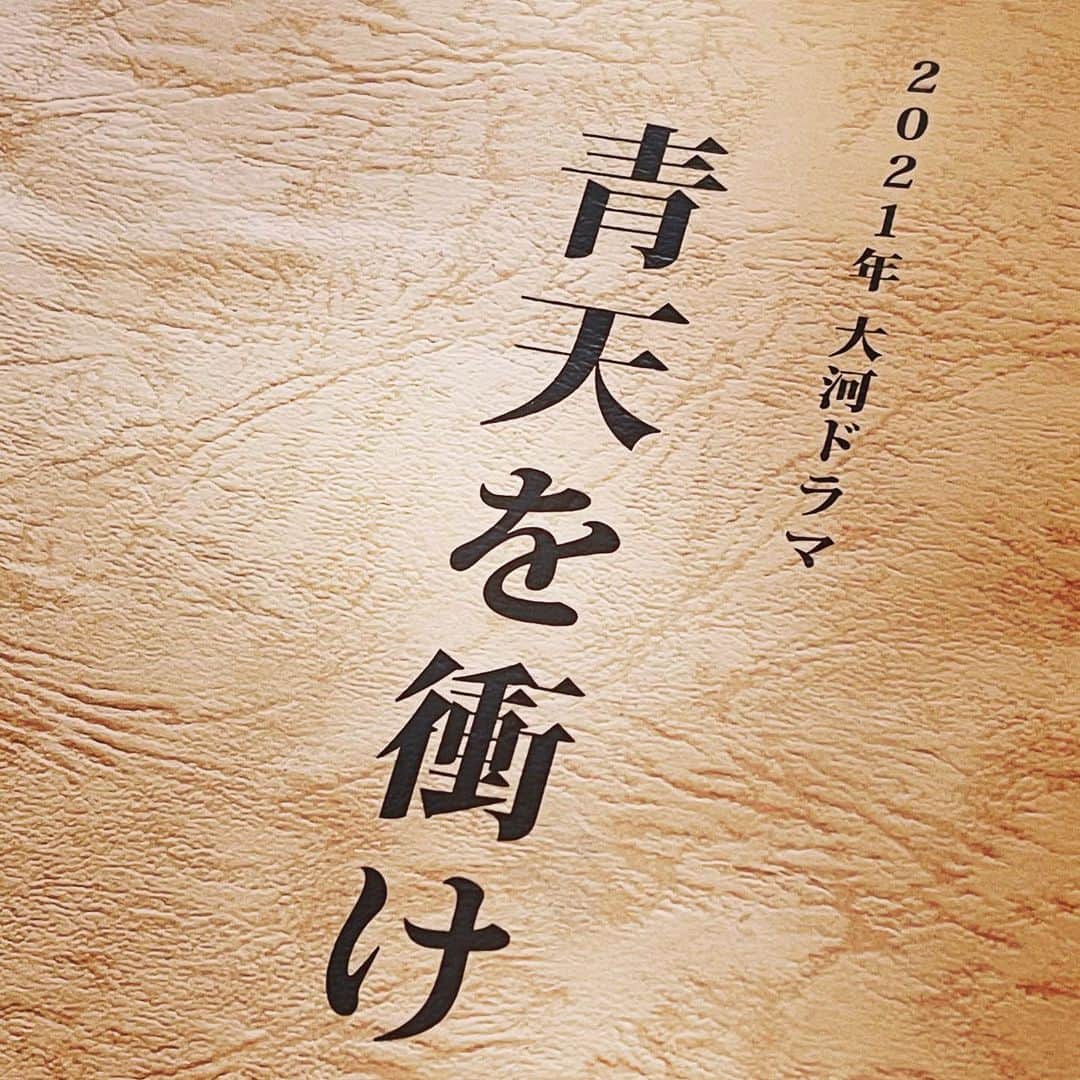 2021年 大河ドラマ
青天を衝け